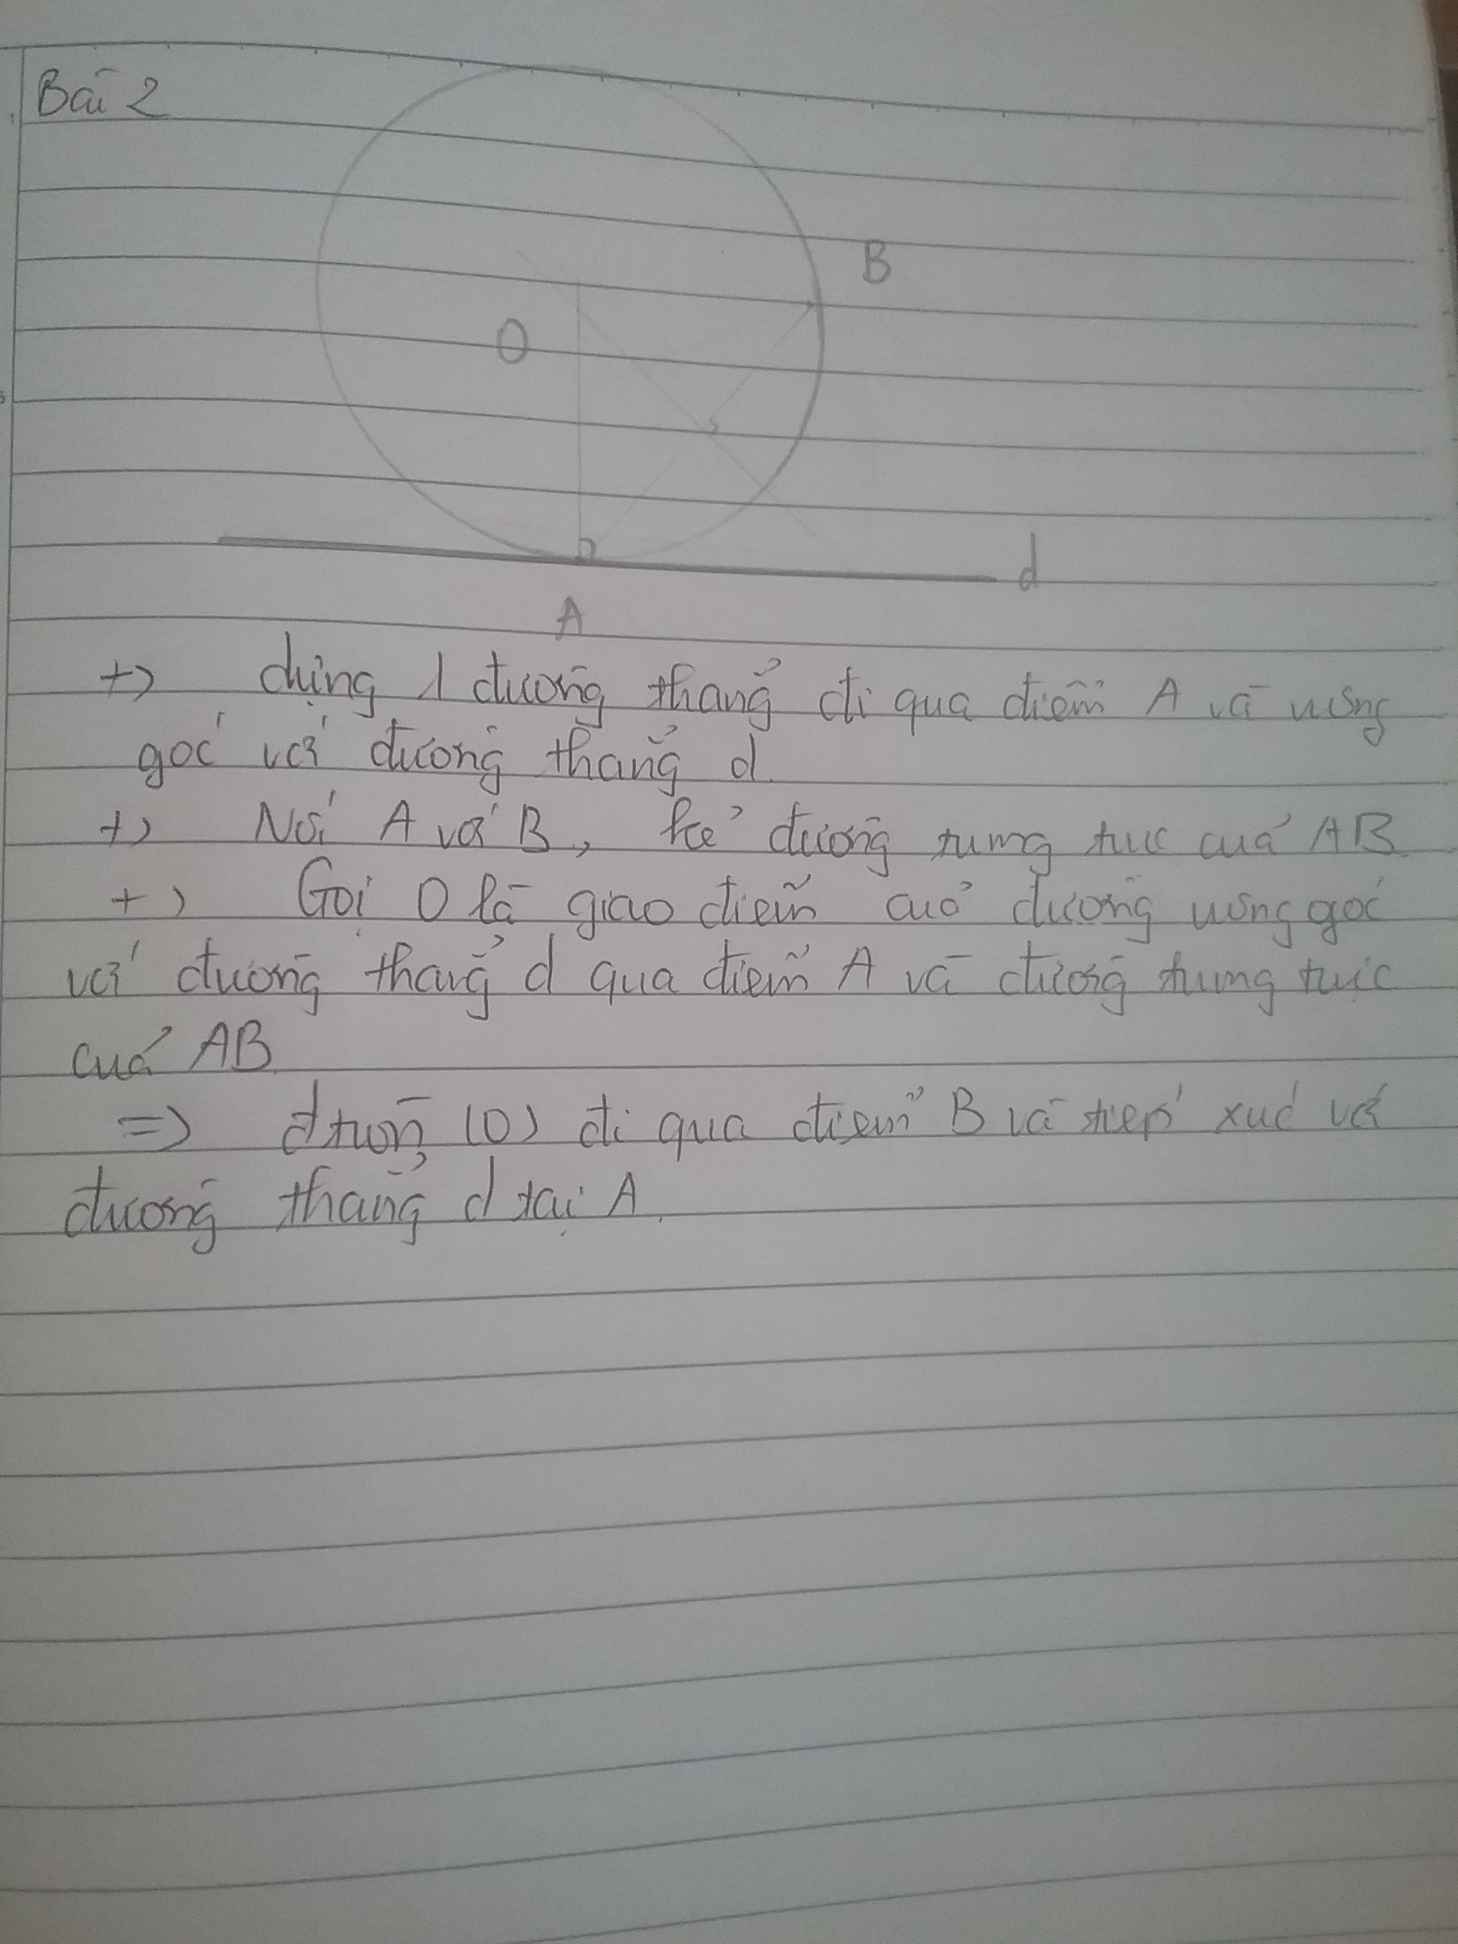 Bài 2
B
O
d
A
+) dựng 1 đường thẳng đi qua điểm A và vuông
góc với đường thẳng d
+) Nối A với B, kẻ đường trung trực của AB
+) Gọi O là giao điểm của đường vuông góc
với đường thẳng d qua điểm A và đường trung trực
của AB
=) đtròn (O) đi qua điểm B và tiếp xúc với
đường thẳng d tại A.